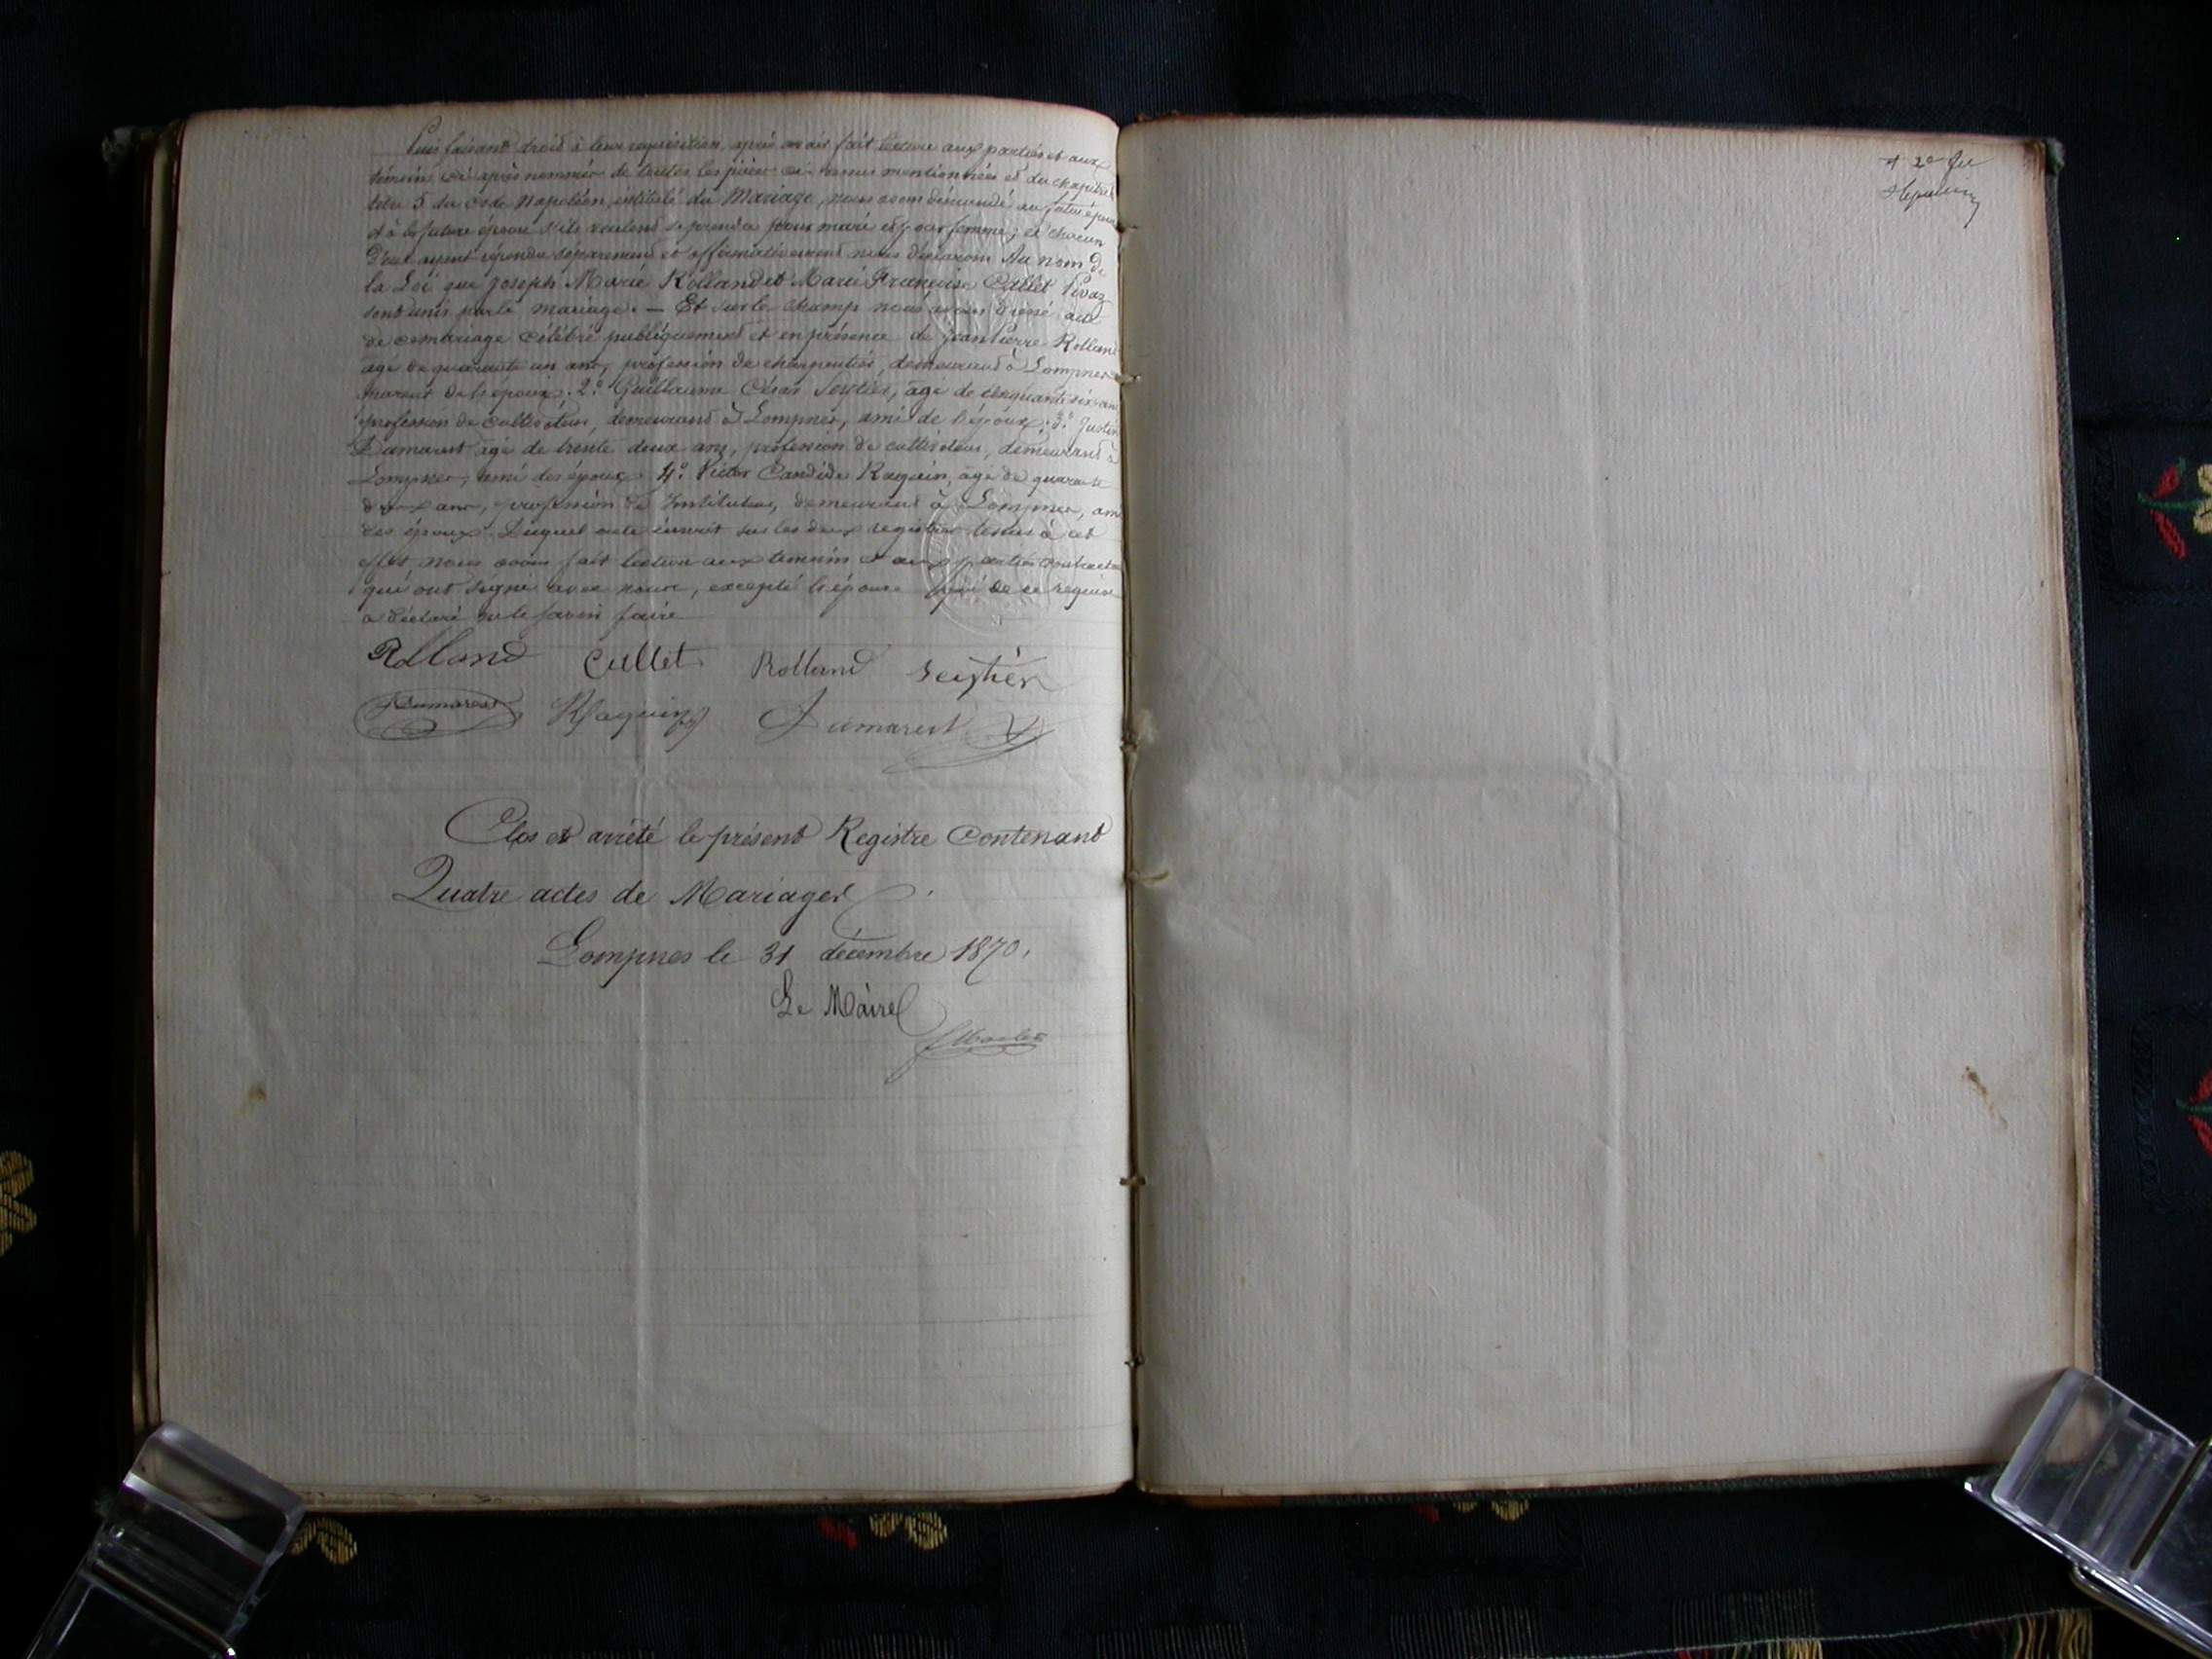 Puis faisant droit à leur requisition, après avoir fait lecture aux parties et aux
témoins ci après nommés de toutes les pièces ci-dessus mentionnées et du chapitre
titre 5 du code Napoléon, intitulé du Mariage, nous avons demandé au futur époux
et à la future épouse s'ils veulent se prendre pour mari et pour femme; et chacun
d'eux ayant répondu séparement et affirmativement nous déclarons Au nom de
la Loi que Joseph Marie Rolland et Marie Françoise Cullet Pivaz
sont unis par le mariage. — Et sur le champ nous avons dressé acte
de ce mariage célébré publiquement et en présence de Jean Pierre Rolland
agé de quarante un ans, profession de charpentier, demeurant à Lompnes
parent de l'époux. 2° Guillaume César Seytier, âgé de cinquante six ans
profession de cultivateur, demeurant à Lompnes, ami de l'époux; 3° Justin
Dumarest âgé de trente deux ans, profession de cultivateur, demeurant à
Lompnes, ami des époux 4° Victor Candide Raquin, âgé de quarante
deux ans, profession de Instituteur, demeurant à Lompnes, ami
des époux. Lequel acte inscrit sur les deux registres tenus à cet
effet nous avons fait lecture aux temoins et aux parties contractantes
qui ont signé avec nous, excepté l'épouse qui de ce requise
a déclaré ne le savoir faire
Rolland Cullet Rolland Seytier
J Dumarest Raquin Dumarest
Clos et arrêté le présent Registre Contenant
Quatre actes de Mariages.
Lompnes le 31 décembre 1870.
Le Maire
4 2e